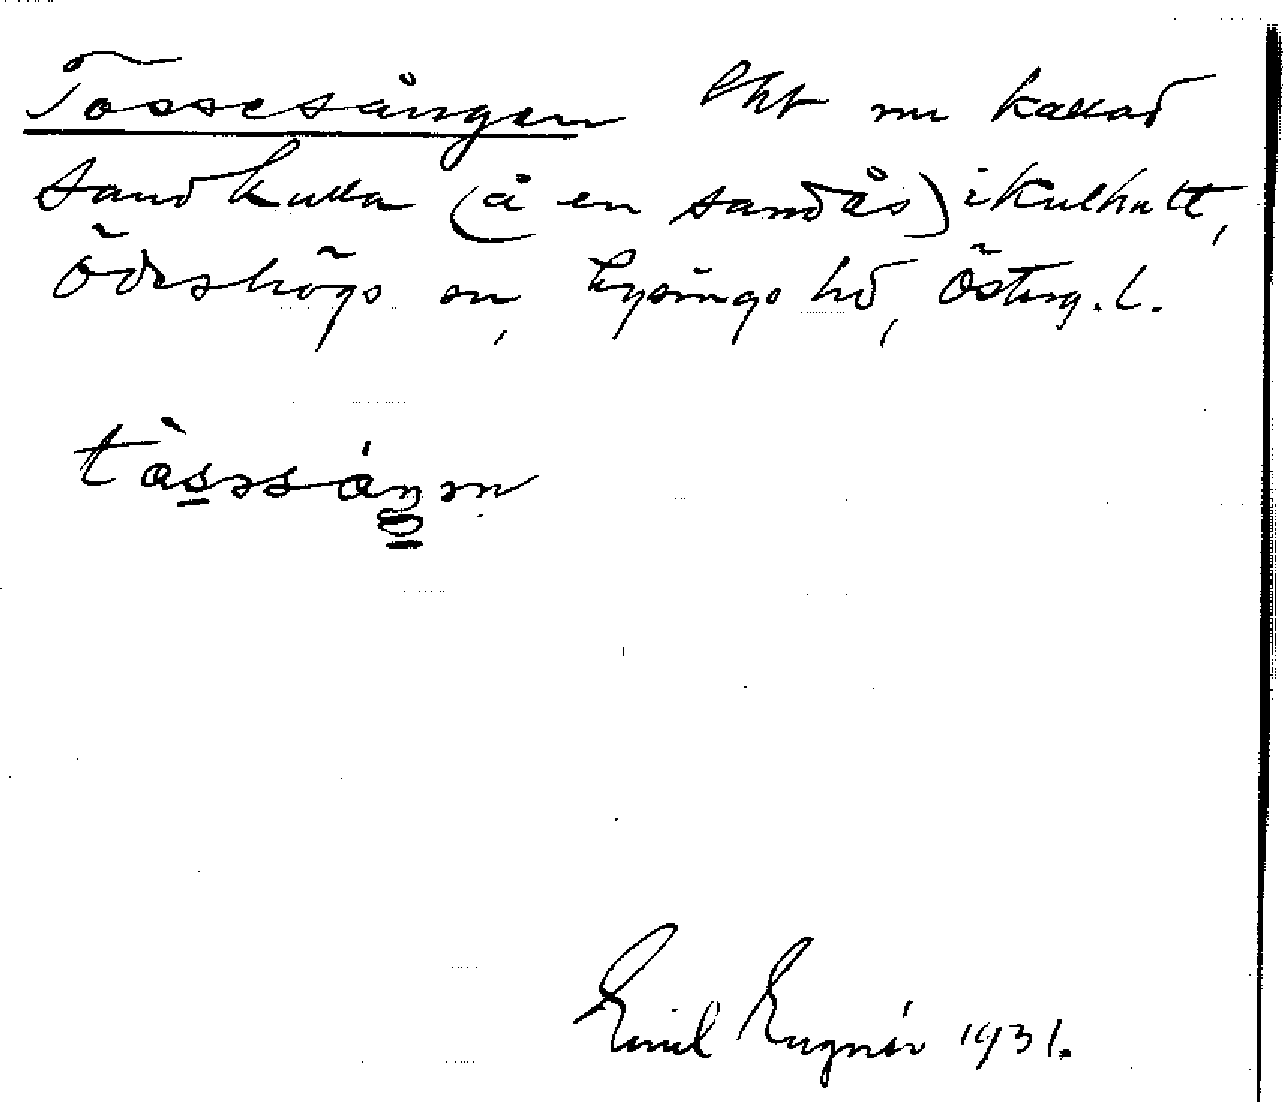 Tossesången Lht nu kallad
Sandkulla (å en sandås) i Kulhult,
Ödeshögs sn, Lysings hd, Österg. l.
tåsəsåŋən
Emil Eugnér 1931.